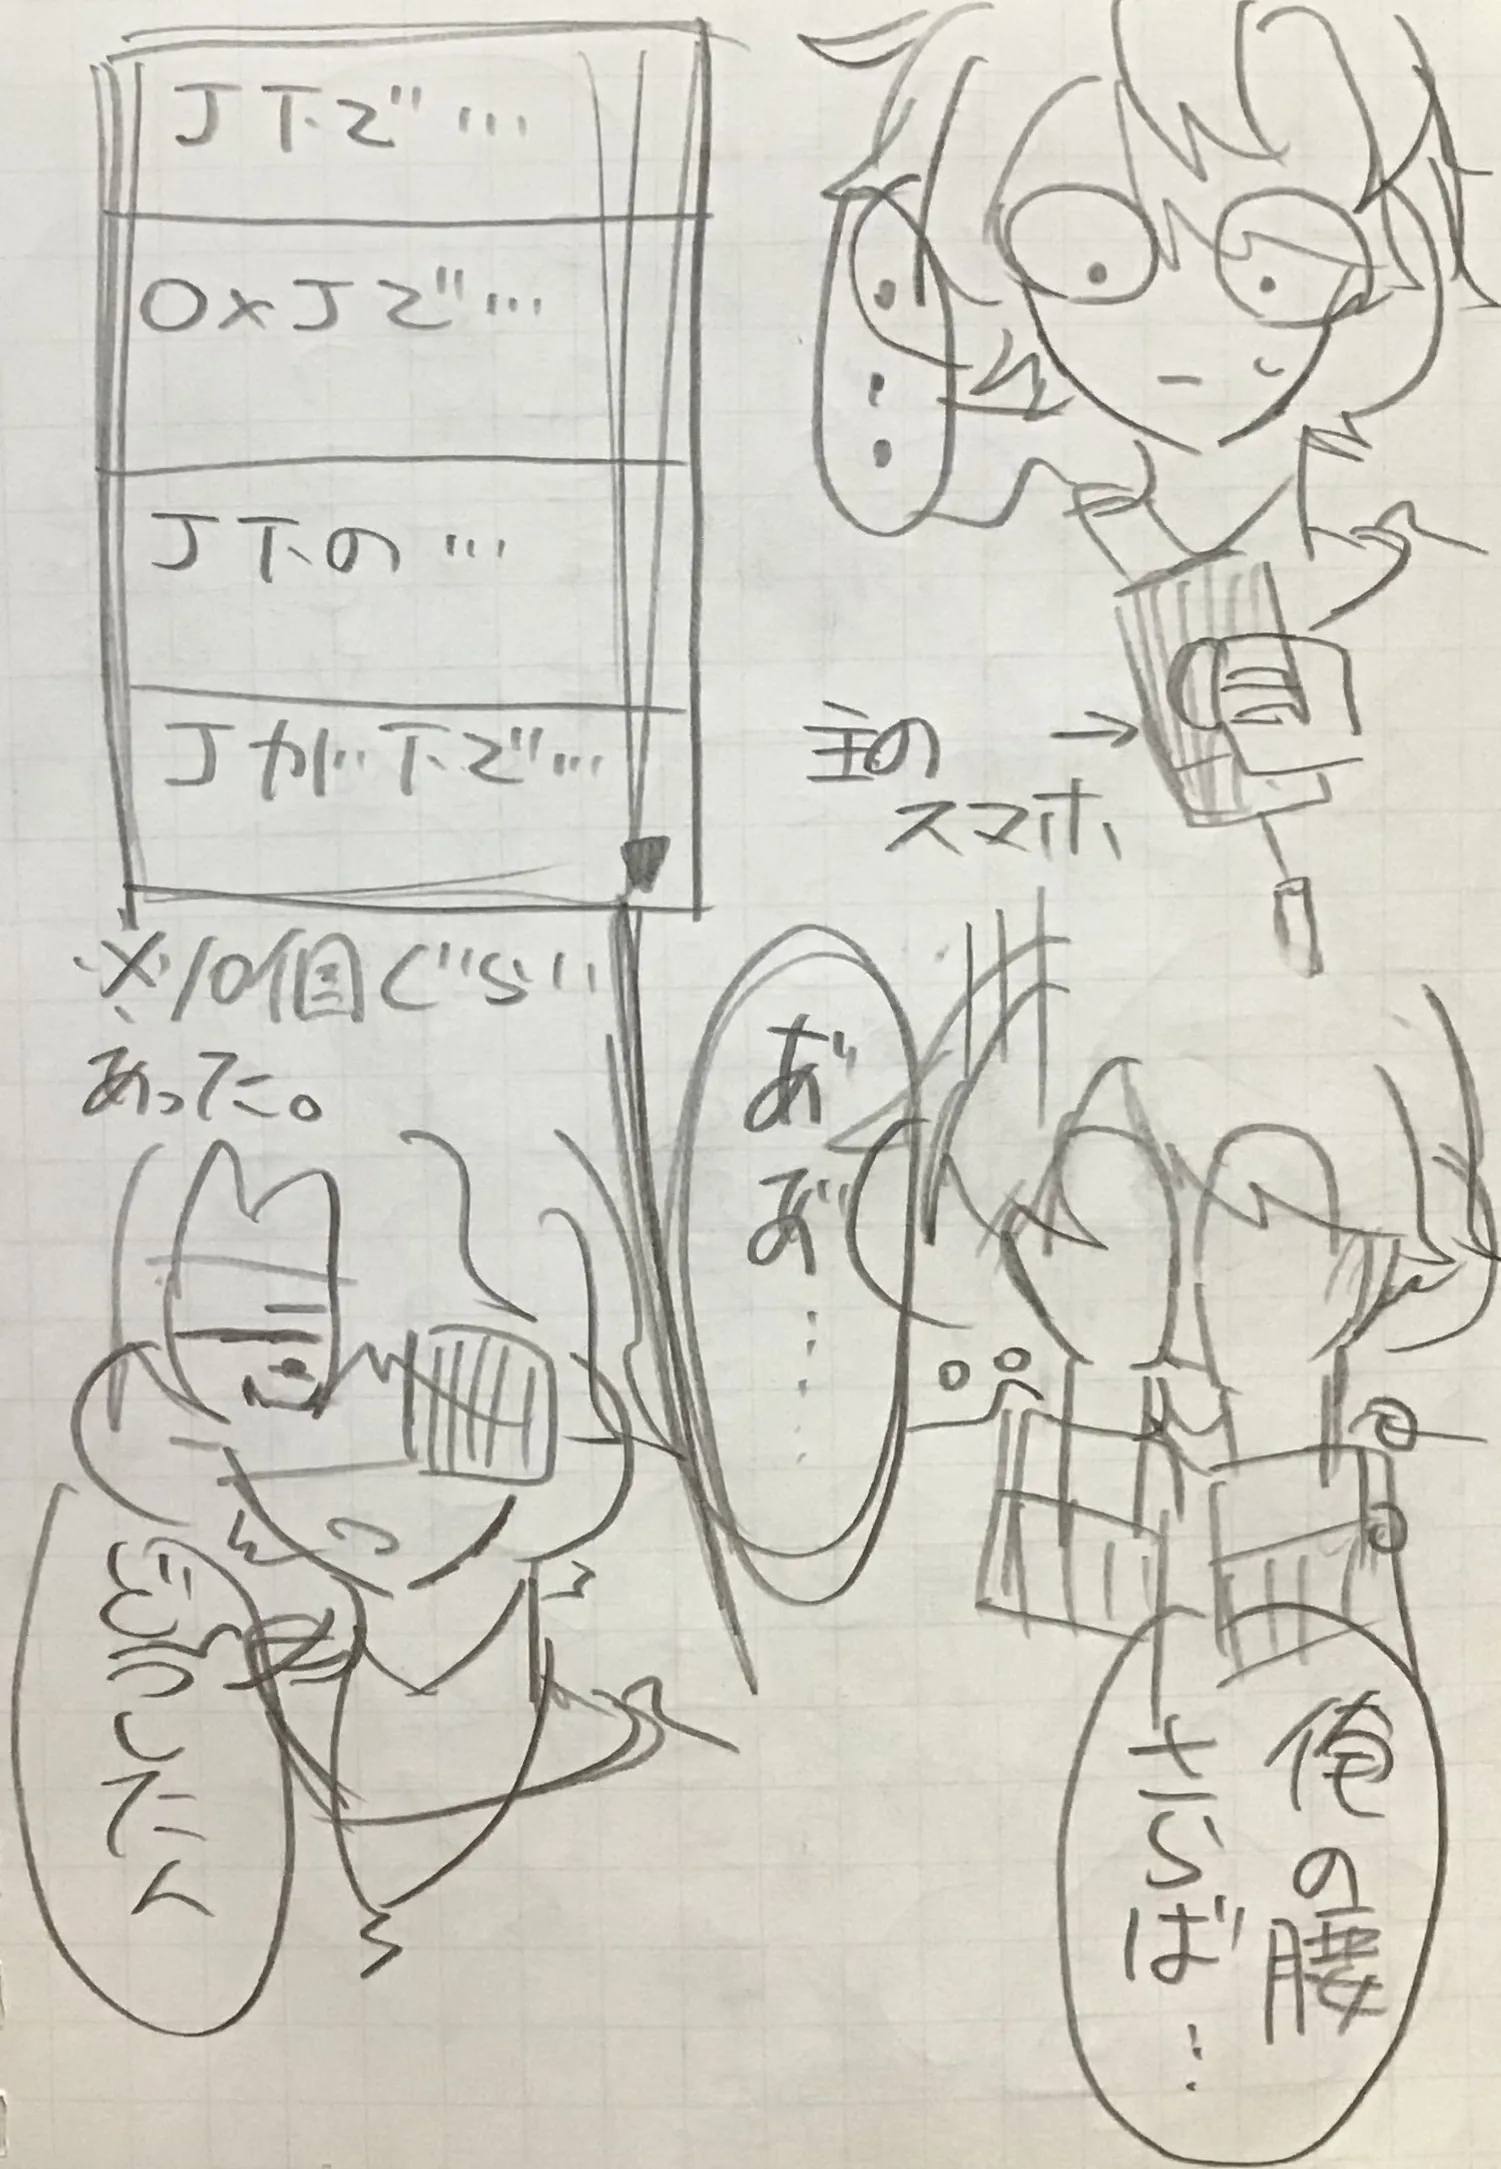 …
主の
スマホ
J下で…
○×Jで…
J下の…
Jが下で…
※10個ぐらい
あった。
俺の腰
さらば…
あ゛
あ゛……
どうした人